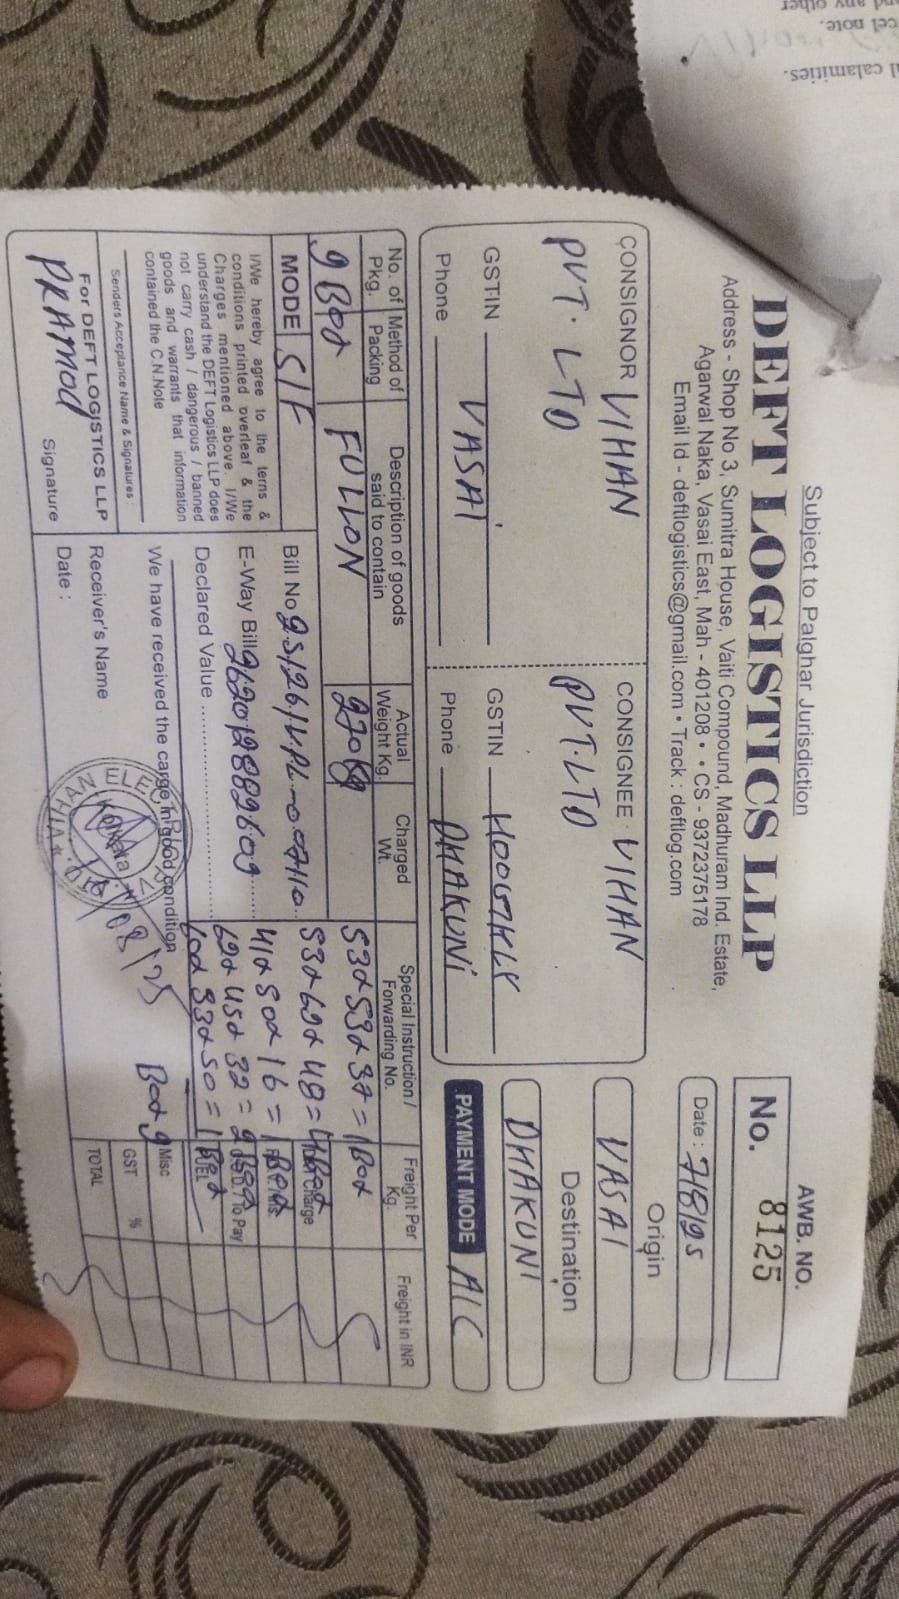 Subject to Palghar Jurisdiction
DEFT LOGISTICS LLP
Address - Shop No 3, Sumitra House, Vaiti Compound, Madhuram Ind. Estate,
Agarwal Naka, Vasai East, Mah - 401208 • CS - 9372375178
Email Id - deftlogistics@gmail.com • Track : deftlog.com
AWB. NO.
No. 8125
Date : 7/8/25
Origin
VASAI
Destination
DHAKUNI
PAYMENT MODE A/C
CONSIGNOR VIHAN
PVT. LTD
GSTIN
VASAI
Phone
CONSIGNEE VIHAN
PVT. LTD
GSTIN HOOGHLY
Phone DHAKUNI
No. of Pkg.
Method of Packing
Description of goods said to contain
Actual Weight Kg.
Charged Wt.
Special Instruction / Forwarding No.
Freight Per Kg.
Freight in INR
9 Box
FULLON
53x53x37=1 Box
53x69x48=4 Box
41x50x16=1 Box
62x45x32=2 Box
60x33x50=1 Box
Box 9
MODE S/F
Bill No
E-Way Bill
Declared Value
I/We hereby agree to the terms &
conditions printed overleaf & the
Charges mentioned above. I/We
understand the DEFT Logistics LLP does
not carry cash / dangerous / banned
goods and warrants that information
contained the C.N.Note
Senders Acceptance Name & Signatures :
For DEFT LOGISTICS LLP
PRAMOD
Signature
We have received the cargo in good condition
Receiver's Name
Date :
Kolkata
08/25
Misc
GST %
TOTAL
nd any other
cel note.
al calamities.